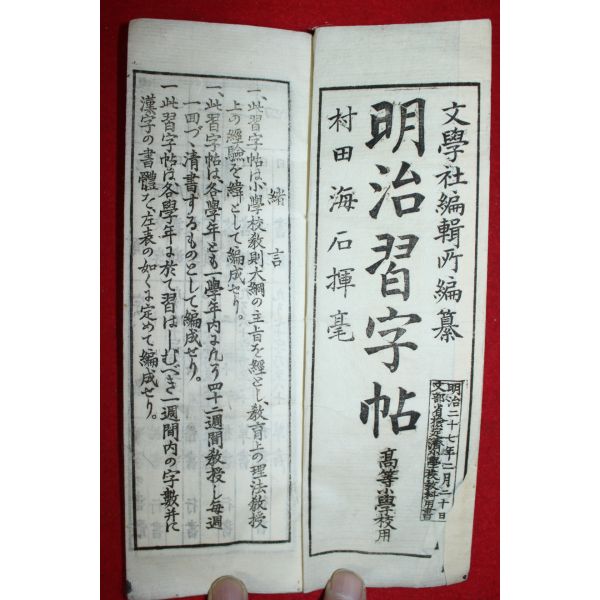 文學社編輯所編纂
明治習字帖
高等小學校用
村田海石揮毫
明治二十七年二月二十日
文部省檢定濟小學校教科用書
緒言
一、此習字帖は小學校教則大綱の主旨を經とし、教育上の理法教授
上の經驗を緯として編成せり。
一、此習字帖は各學年とも一學年内におよそ四十二週間教授し毎週
一回づゝ清書するものとして編成せり。
一此習字帖は各學年に於て習はしむべき一週間内の字數并に
漢字の書體を左表の如くに定めて編成せり。